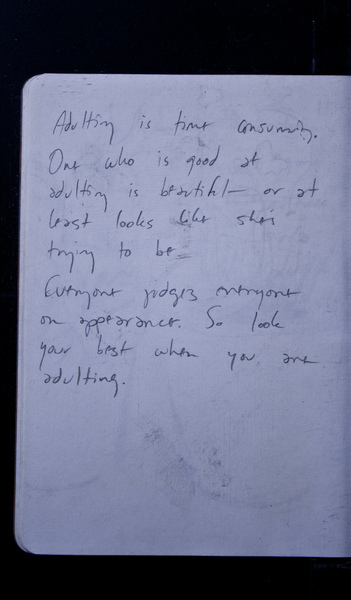 Adulting is time consuming.
One who is good at
adulting is beautiful – or at
least looks like she's
trying to be
Everyone judges everyone
on appearance. So look
your best when you are
adulting.